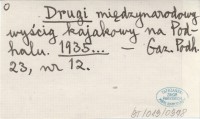 Drugi międzynarodowy
wyścig kajakowy na Pod-
halu. 1935... — Gaz. Podh.
23, nr 12.